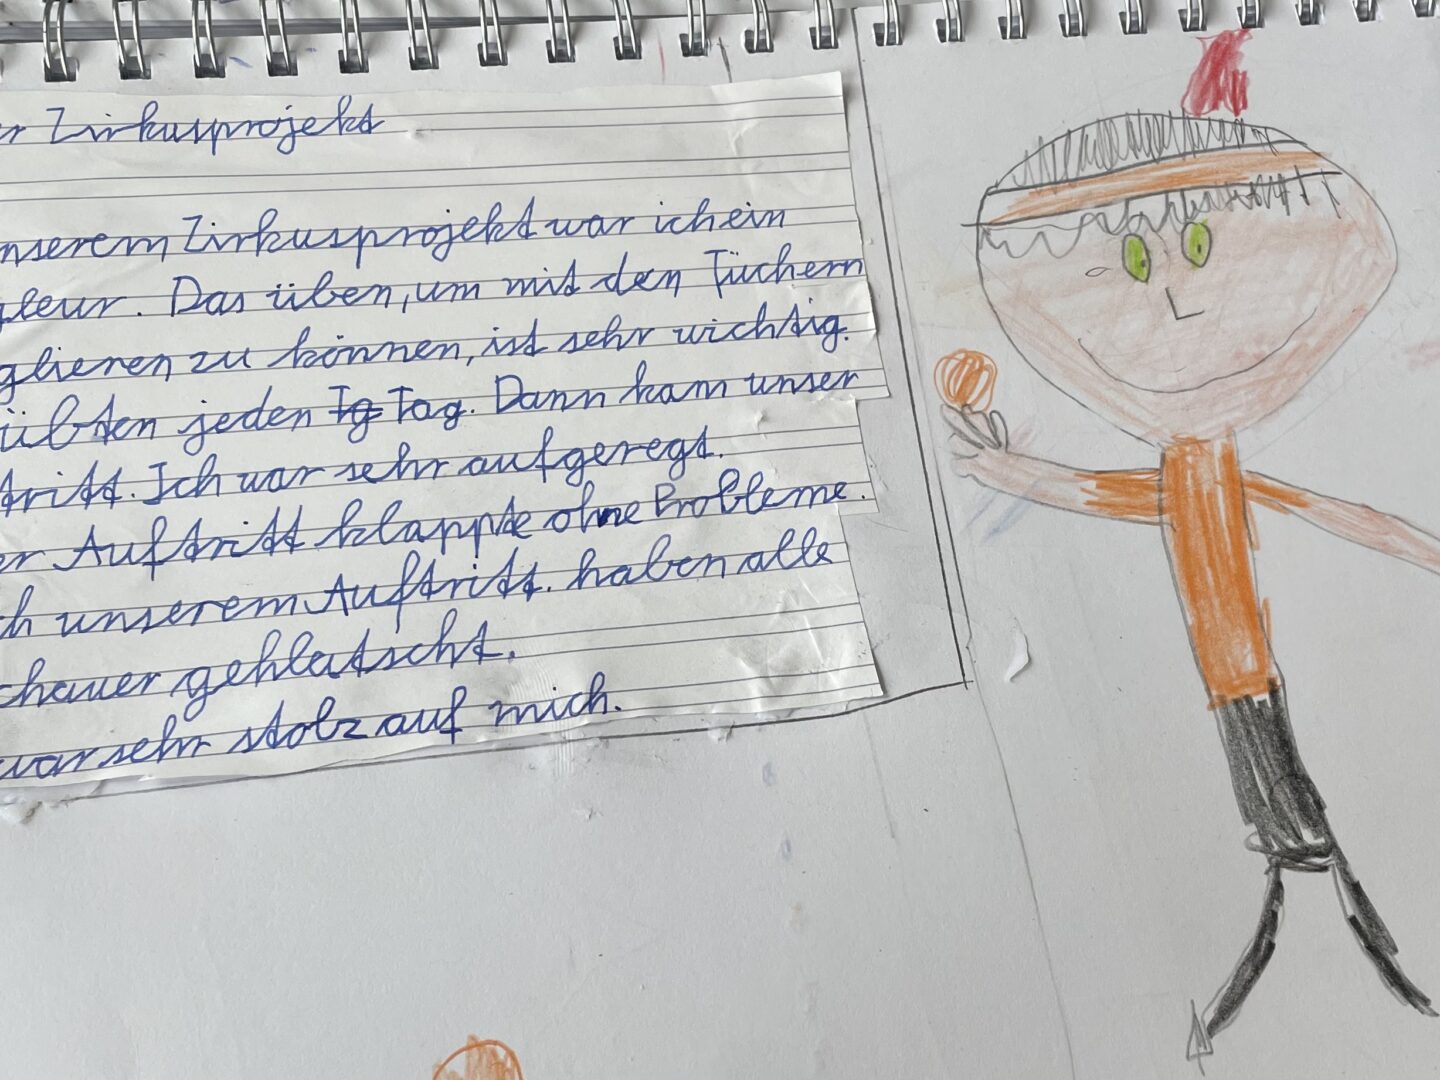 r Zirkusprojekt
nserem Zirkusprojekt war ich ein
gleur. Das üben, um mit den Tüchern
glieren zu können, ist sehr wichtig.
übten jeden Tg Tag. Dann kam unser
tritt. Ich war sehr aufgeregt.
er Auftritt klappte ohne Probleme.
ch unserem Auftritt. haben alle
chauer geklatscht.
war sehr stolz auf mich.